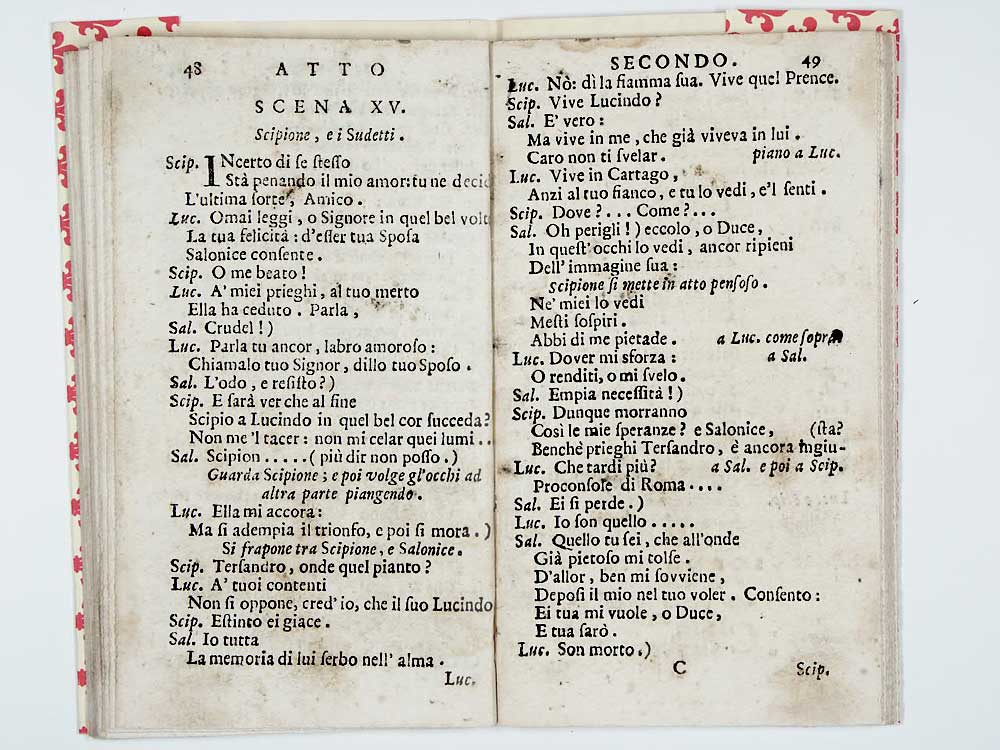 48 ATTO
SCENA XV.
Scipione, e i Sudetti.
Scip. INcerto di se ſteſſo
Stà penando il mio amor: tu ne decid
L'ultima ſorte, Amico.
Luc. Omai leggi, o Signore in quel bel volt
La tua felicità: d'eſſer tua Spoſa
Salonice conſente.
Scip. O me beato!
Luc. A' miei prieghi, al tuo merto
Ella ha ceduto. Parla,
Sal. Crudel!)
Luc. Parla tu ancor, labro amoroſo:
Chiamalo tuo Signor, dillo tuo Spoſo.
Sal. L'odo, e reſiſto?)
Scip. E ſarà ver che al fine
Scipio a Lucindo in quel bel cor ſucceda?
Non me 'l tacer: non mi celar quei lumi..
Sal. Scipion.....( più dir non poſſo.)
Guarda Scipione; e poi volge gl'occhi ad
altra parte piangendo.
Luc. Ella mi accora:
Ma ſi adempia il trionfo, e poi ſi mora.)
Si frapone tra Scipione, e Salonice.
Scip. Terſandro, onde quel pianto?
Luc. A' tuoi contenti
Non ſi oppone, cred' io, che il ſuo Lucindo
Scip. Eſtinto ei giace.
Sal. Io tutta
La memoria di lui ſerbo nell' alma.
Luc.
SECONDO. 49
Luc. Nò: dì la fiamma ſua. Vive quel Prence.
Scip. Vive Lucindo?
Sal. E' vero:
Ma vive in me, che già viveva in lui.
Caro non ti ſvelar. piano a Luc.
Luc. Vive in Cartago,
Anzi al tuo fianco, e tu lo vedi, e'l ſenti.
Scip. Dove?... Come?...
Sal. Oh perigli!) eccolo, o Duce,
In queſt' occhi lo vedi, ancor ripieni
Dell' immagine ſua:
Scipione ſi mette in atto penſoſo.
Ne' miei lo vedi
Meſti ſoſpiri.
Abbi di me pietade. a Luc. come ſopra
Luc. Dover mi sforza: a Sal.
O renditi, o mi ſvelo.
Sal. Empia neceſſità!)
Scip. Dunque morranno
Così le mie ſperanze? e Salonice, (ſta?
Benchè prieghi Terſandro, è ancora ingiu-
Luc. Che tardi più? a Sal. e poi a Scip.
Proconſole di Roma....
Sal. Ei ſi perde.)
Luc. Io ſon quello.....
Sal. Quello tu ſei, che all'onde
Già pietoſo mi tolſe.
D'allor, ben mi ſovviene,
Depoſi il mio nel tuo voler. Conſento:
Ei tua mi vuole, o Duce,
E tua ſarò.
Luc. Son morto.)
C Scip.